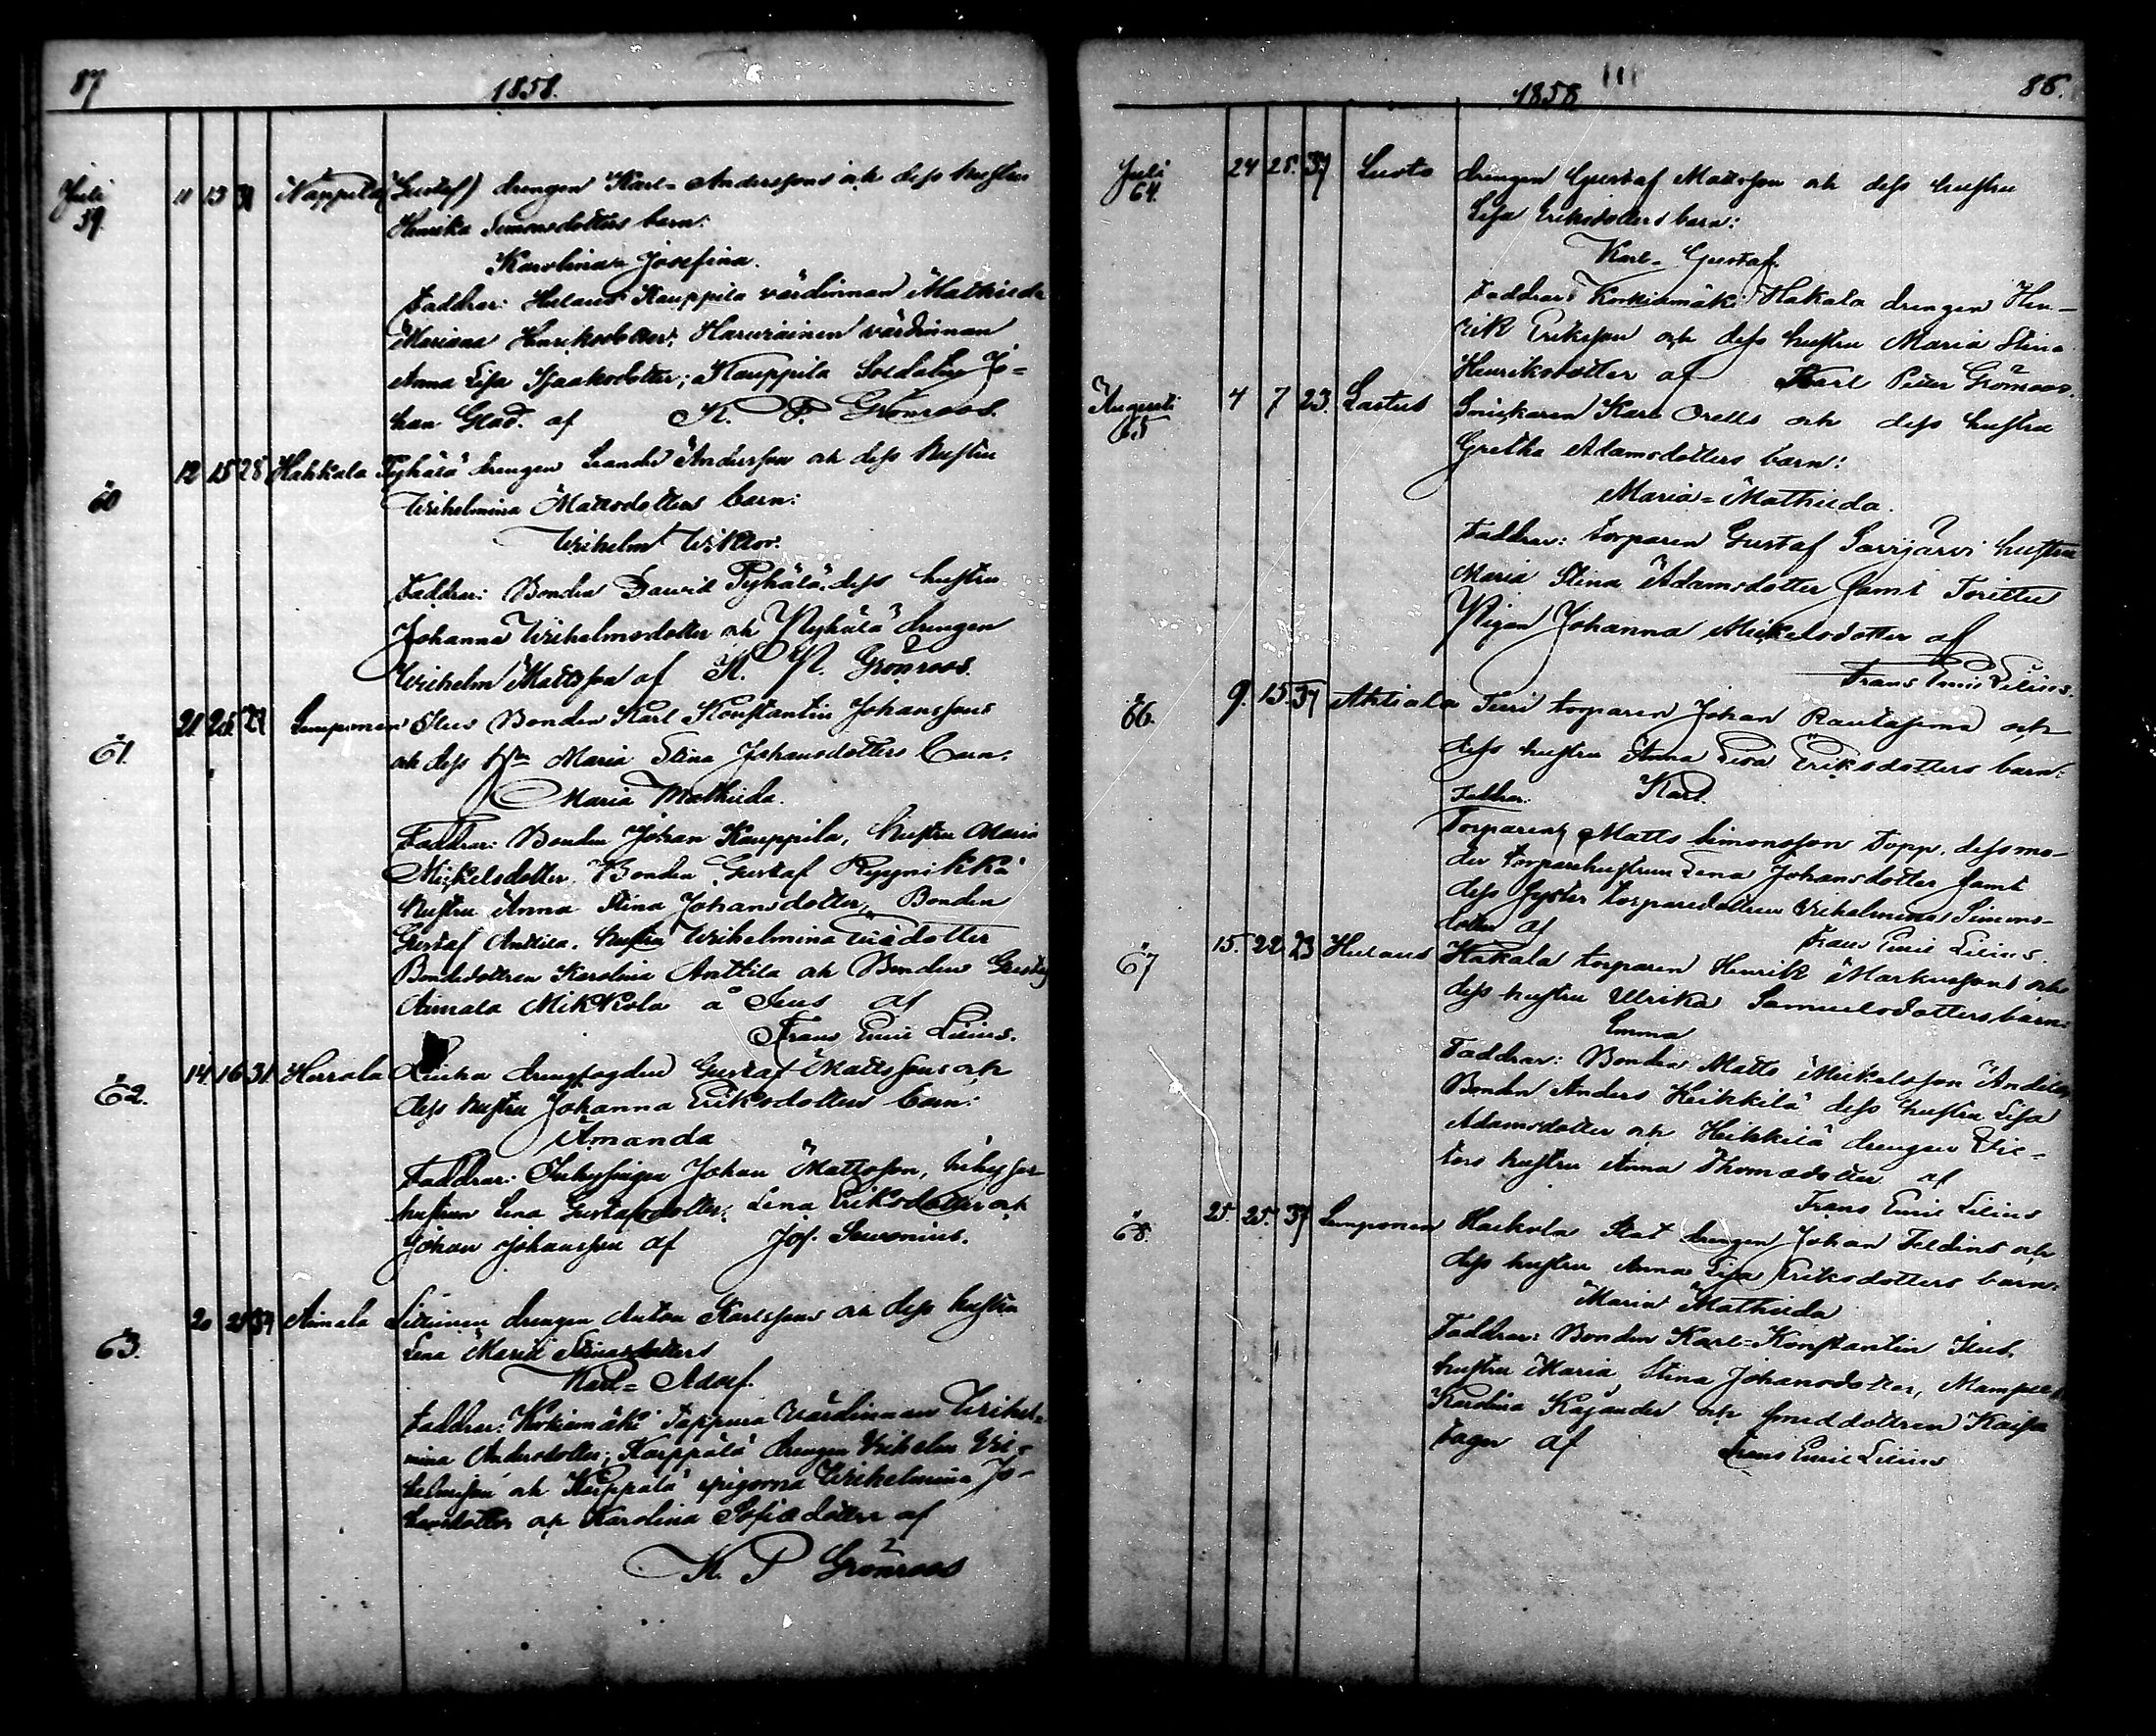 87
1858.
Juli
59.
11 13 31 Nappila (Gustaf) drengen Karl Anderssons och dess hustru
Henrika Simonsdotters barn:
Karolina Josefina.
Faddrar: Hulaus Kauppila värdinnan Mathilda
Mariana Henriksdotter; Haruiainen värdinnan
Anna Lisa Isaaksdotter; Kauppila Soldaten Jo=
han Glad. af K. P. Grönroos.
60
12 15 28 Hakkala Pyhälä drengen Leander Andersson och dess hustru
Wilhelmina Mattsdotters barn:
Wilhelm Wiktor.
Faddrar: Bonden David Pyhälä, dess hustru
Johanna Wilhelmsdotter och Pyhälä drengen
Wilhelm Mattsson af K. P. Grönroos.
61.
21 25 27 Lemponen Ilus Bonden Karl Konstantin Johanssons
och dess Maria Stina Johansdotters barn:
Maria Mathilda.
Faddrar: Bonden Johan Kauppila, hustru Maria
Mickelsdotter, Bonden Gustaf Ryynikkä
hustru Anna Stina Johansdotter, Bonden
Gustaf Anttila, hustru Wilhelmina
Bondedottren Karolina Anttila och Bonden Gustaf
Aimala Mikkola å Ilus af
Frans Emil Lilius.
62.
14 16 31 Herrala drengfogden Gustaf Mattssons och
dess hustru Johanna Eriksdotters barn:
Amanda
Faddrar: Inhysingen Johan Mattsson,
hustrun Lena Gustafsdotter, Lena Eriksdotter och
Johan Johansson af Jos.
63.
20 25 37 Aimala drengen Anton Karlssons och dess hustru
Lena Maria
Karl= Adolf.
Faddrar: Tappura Värdinnan Wilhel=
mina Andersdotter; Karppälä drengen Wilhelm Wil=
helmsson och Karppälä pigorna Wilhelmina Jo-
hansdotter och Karolina af
K. P Grönroos
1858
88.
Juli
64.
24 25. 37 Lusto drengen Gustaf Mattsson och dess hustru
Lisa Eriksdotters barn:
Karl= Gustaf.
Faddrar: Korkiamäki Hakala drengen Hen-
rik Eriksson och dess hustru Maria Stina
Henriksdotter af Karl Peter Grönroos.
Augusti
65
4 7 23. Lastus Snickaren Karl Orells och dess hustru
Gretha Adamsdotters barn:
Maria= Mathilda.
Faddrar: torparen Gustaf Savijärvi hustru
Maria Stina Adamsdotter samt
Pigan Johanna Mickelsdotter af
Frans Emil Lilius.
66.
9. 15. 37 Ahtiala torparen Johan Rautajuna och
dess hustru Anna Lisa Eriksdotters barn:
Faddrar: Karl.
Torparen Matts Simonsson Topp, dess mo-
der torparehustrun Lena Johansdotter samt
dess syster torparedottren Wilhelmina Simons-
dotter af Frans Emil Lilius.
67
15. 22 23 Hulaus Hakala torparen Henrik Markussons och
dess hustru Ulrika Samuelsdotters barn:
Emma
Faddrar: Bonden Matts Mickelsson
Bonden Anders Heikkilä dess hustru Lisa
Adamsdotter och Heikkilä drengen Vic=
tors hustru Anna Thomasdotter af
Frans Emil Lilius
68.
25. 25. 37 Lemponen Stat drengen Johan Feldins och
dess hustru Anna Lisa Eriksdotters barn:
Maria Mathilda
Faddrar: Bonden Karl=Konstantin Ilus,
hustru Maria Stina Johansdotter, Mamsell
Karolina Kajander och smeddottren Kaisa
Fager af Frans Emil Lilius